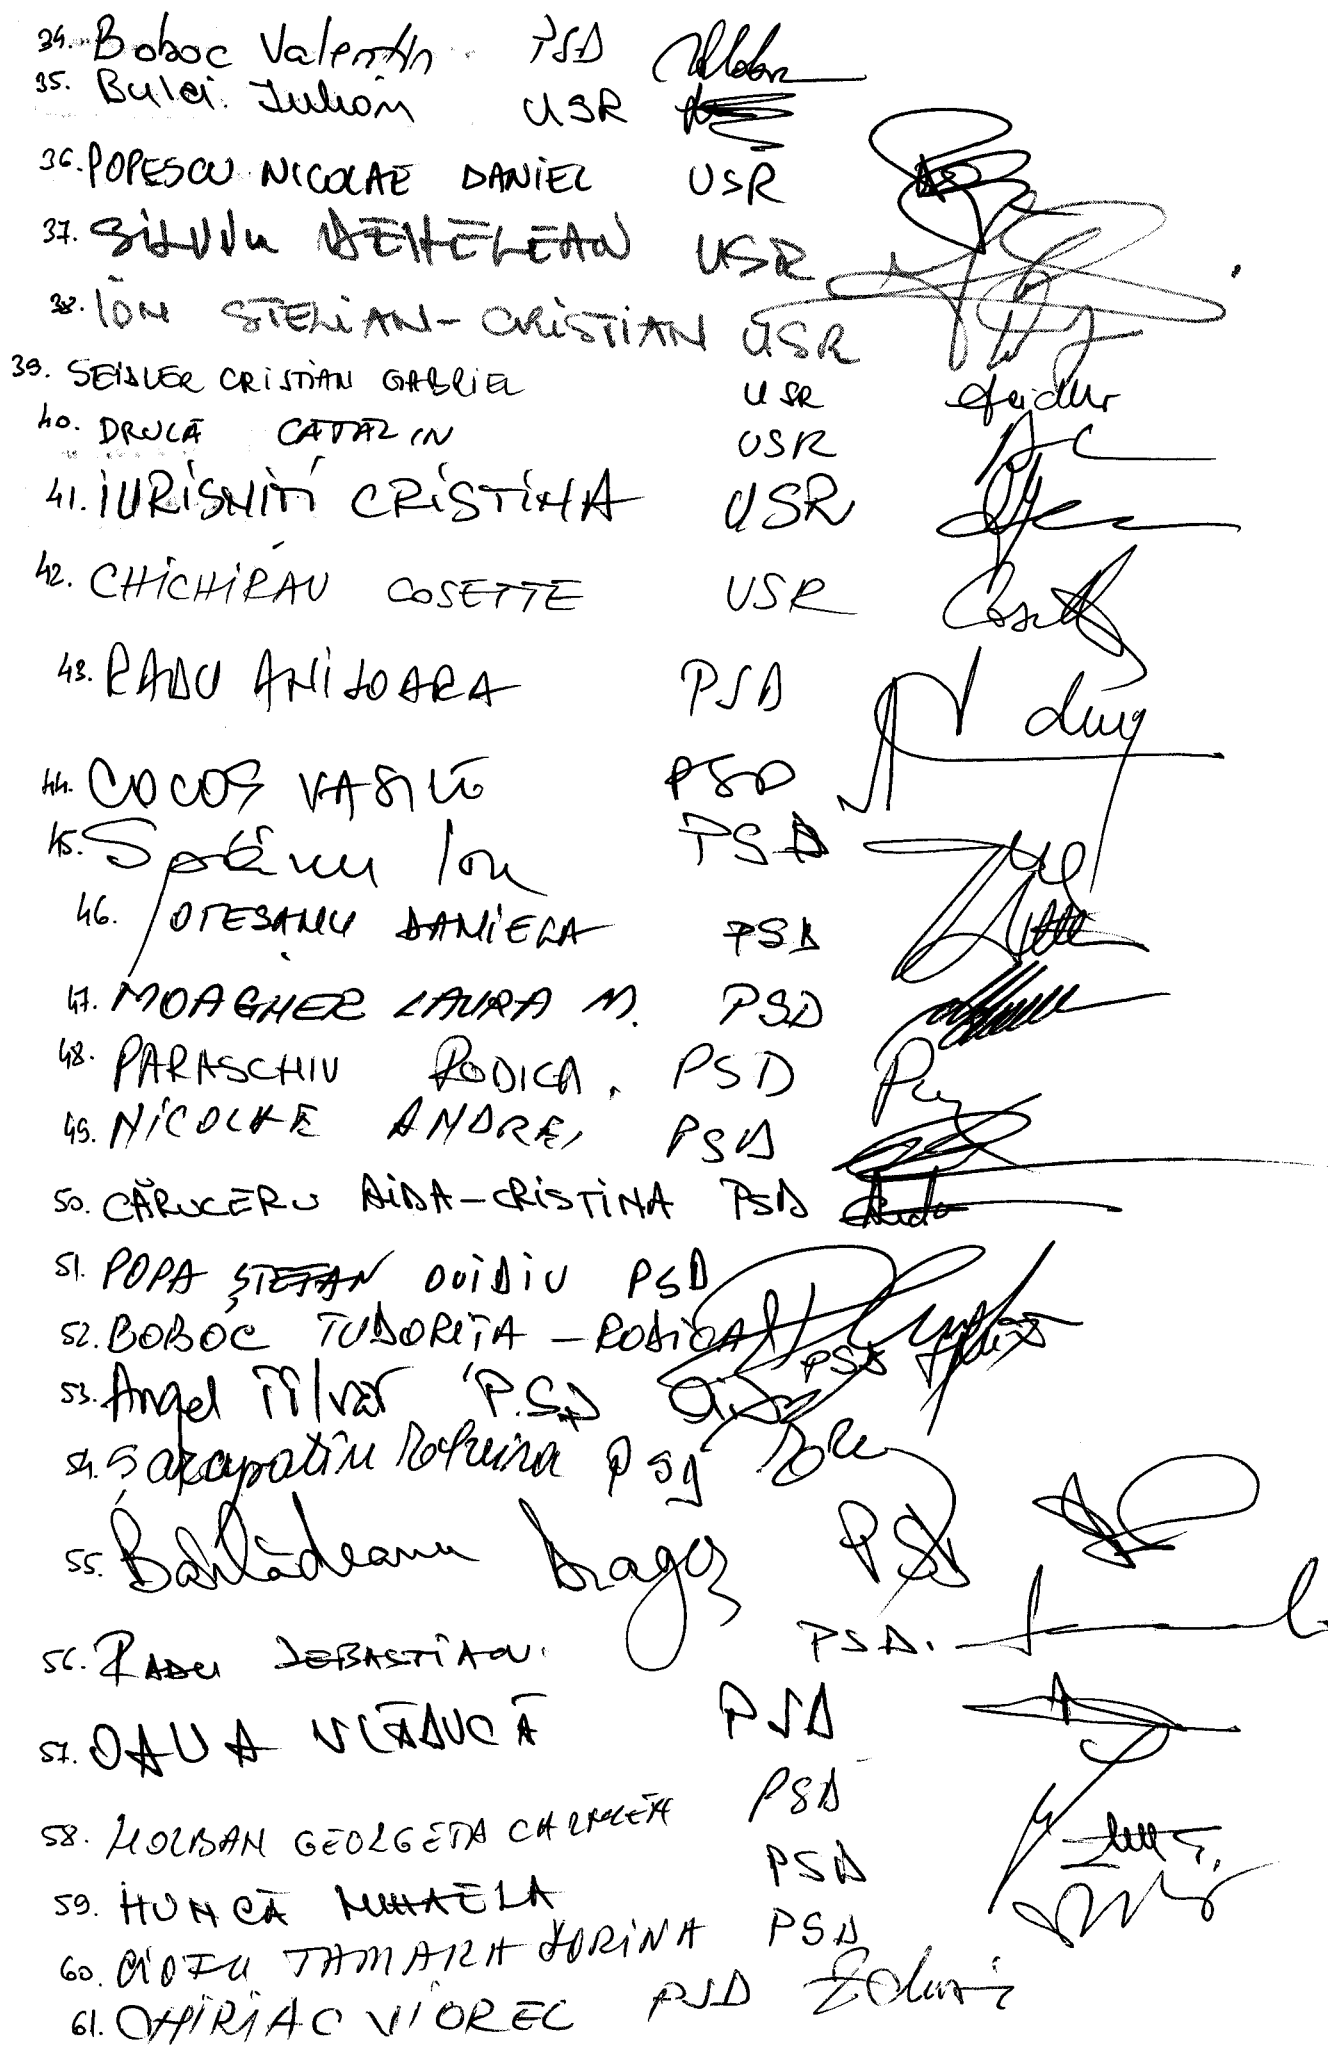 34. Boboc Valentin PSD
35. Bulai Iulian USR
36. POPESCU NICOLAE DANIEL USR
37. SILVIU DEHELEAN USR
38. ION STELIAN-CRISTIAN USR
39. SEIDLER CRISTIAN GABRIEL USR
40. DRULĂ CĂTĂLIN USR
41. IURIȘNIȚI CRISTINA USR
42. CHICHIRĂU COSETTE USR
43. RADU ANIȘOARA PSD
44. COCOȘ VASILE PSD
45. Spânu Ion PSD
46. OTEȘANU DANIELA PSD
47. MOAGHER LAURA M. PSD
48. PARASCHIV RODICA. PSD
49. NICOLAE ANDREI PSD
50. CĂRUCERU AIDA-CRISTINA PSD
51. POPA ȘTEFAN OVIDIU PSD
52. BOBOC TUDORIȚA - RODICA PSD
53. Angel Tîlvăr P.S.D
54. PSD
55. Bârlădeanu Dragoș PSD
56. RADU SEBASTIAN. PSD.
57. OANA VLĂDUCĂ PSD
58. HOLBAN GEORGETA CARMEN PSD
59. HUNCĂ MIHAELA PSD
60. CIOFU TAMARA DORINA PSD
61. CHIRIAC VIOREL PSD